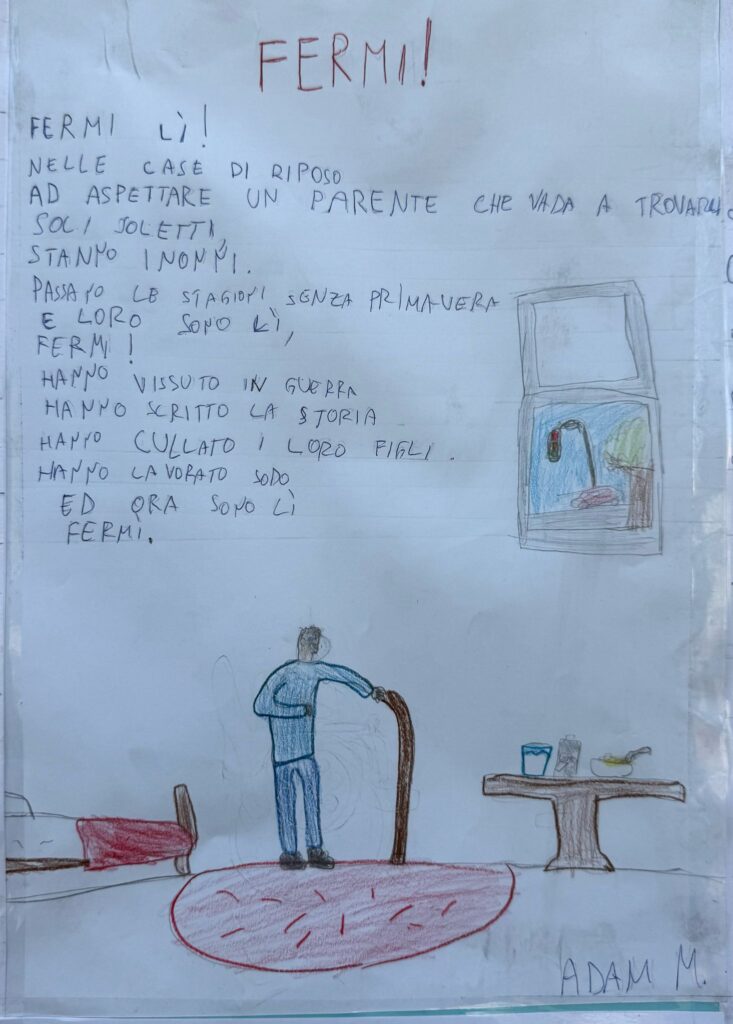 FERMI!
FERMI LÌ!
NELLE CASE DI RIPOSO
AD ASPETTARE UN PARENTE CHE VADA A TROVARLI.
SOLI SOLETTI,
STANNO I NONNI.
PASSANO LE STAGIONI SENZA PRIMAVERA
E LORO SONO LÌ,
FERMI!
HANNO VISSUTO IN GUERRA
HANNO SCRITTO LA STORIA
HANNO CULLATO I LORO FIGLI.
HANNO LAVORATO SODO
ED ORA SONO LÌ
FERMI.
ADAM M.